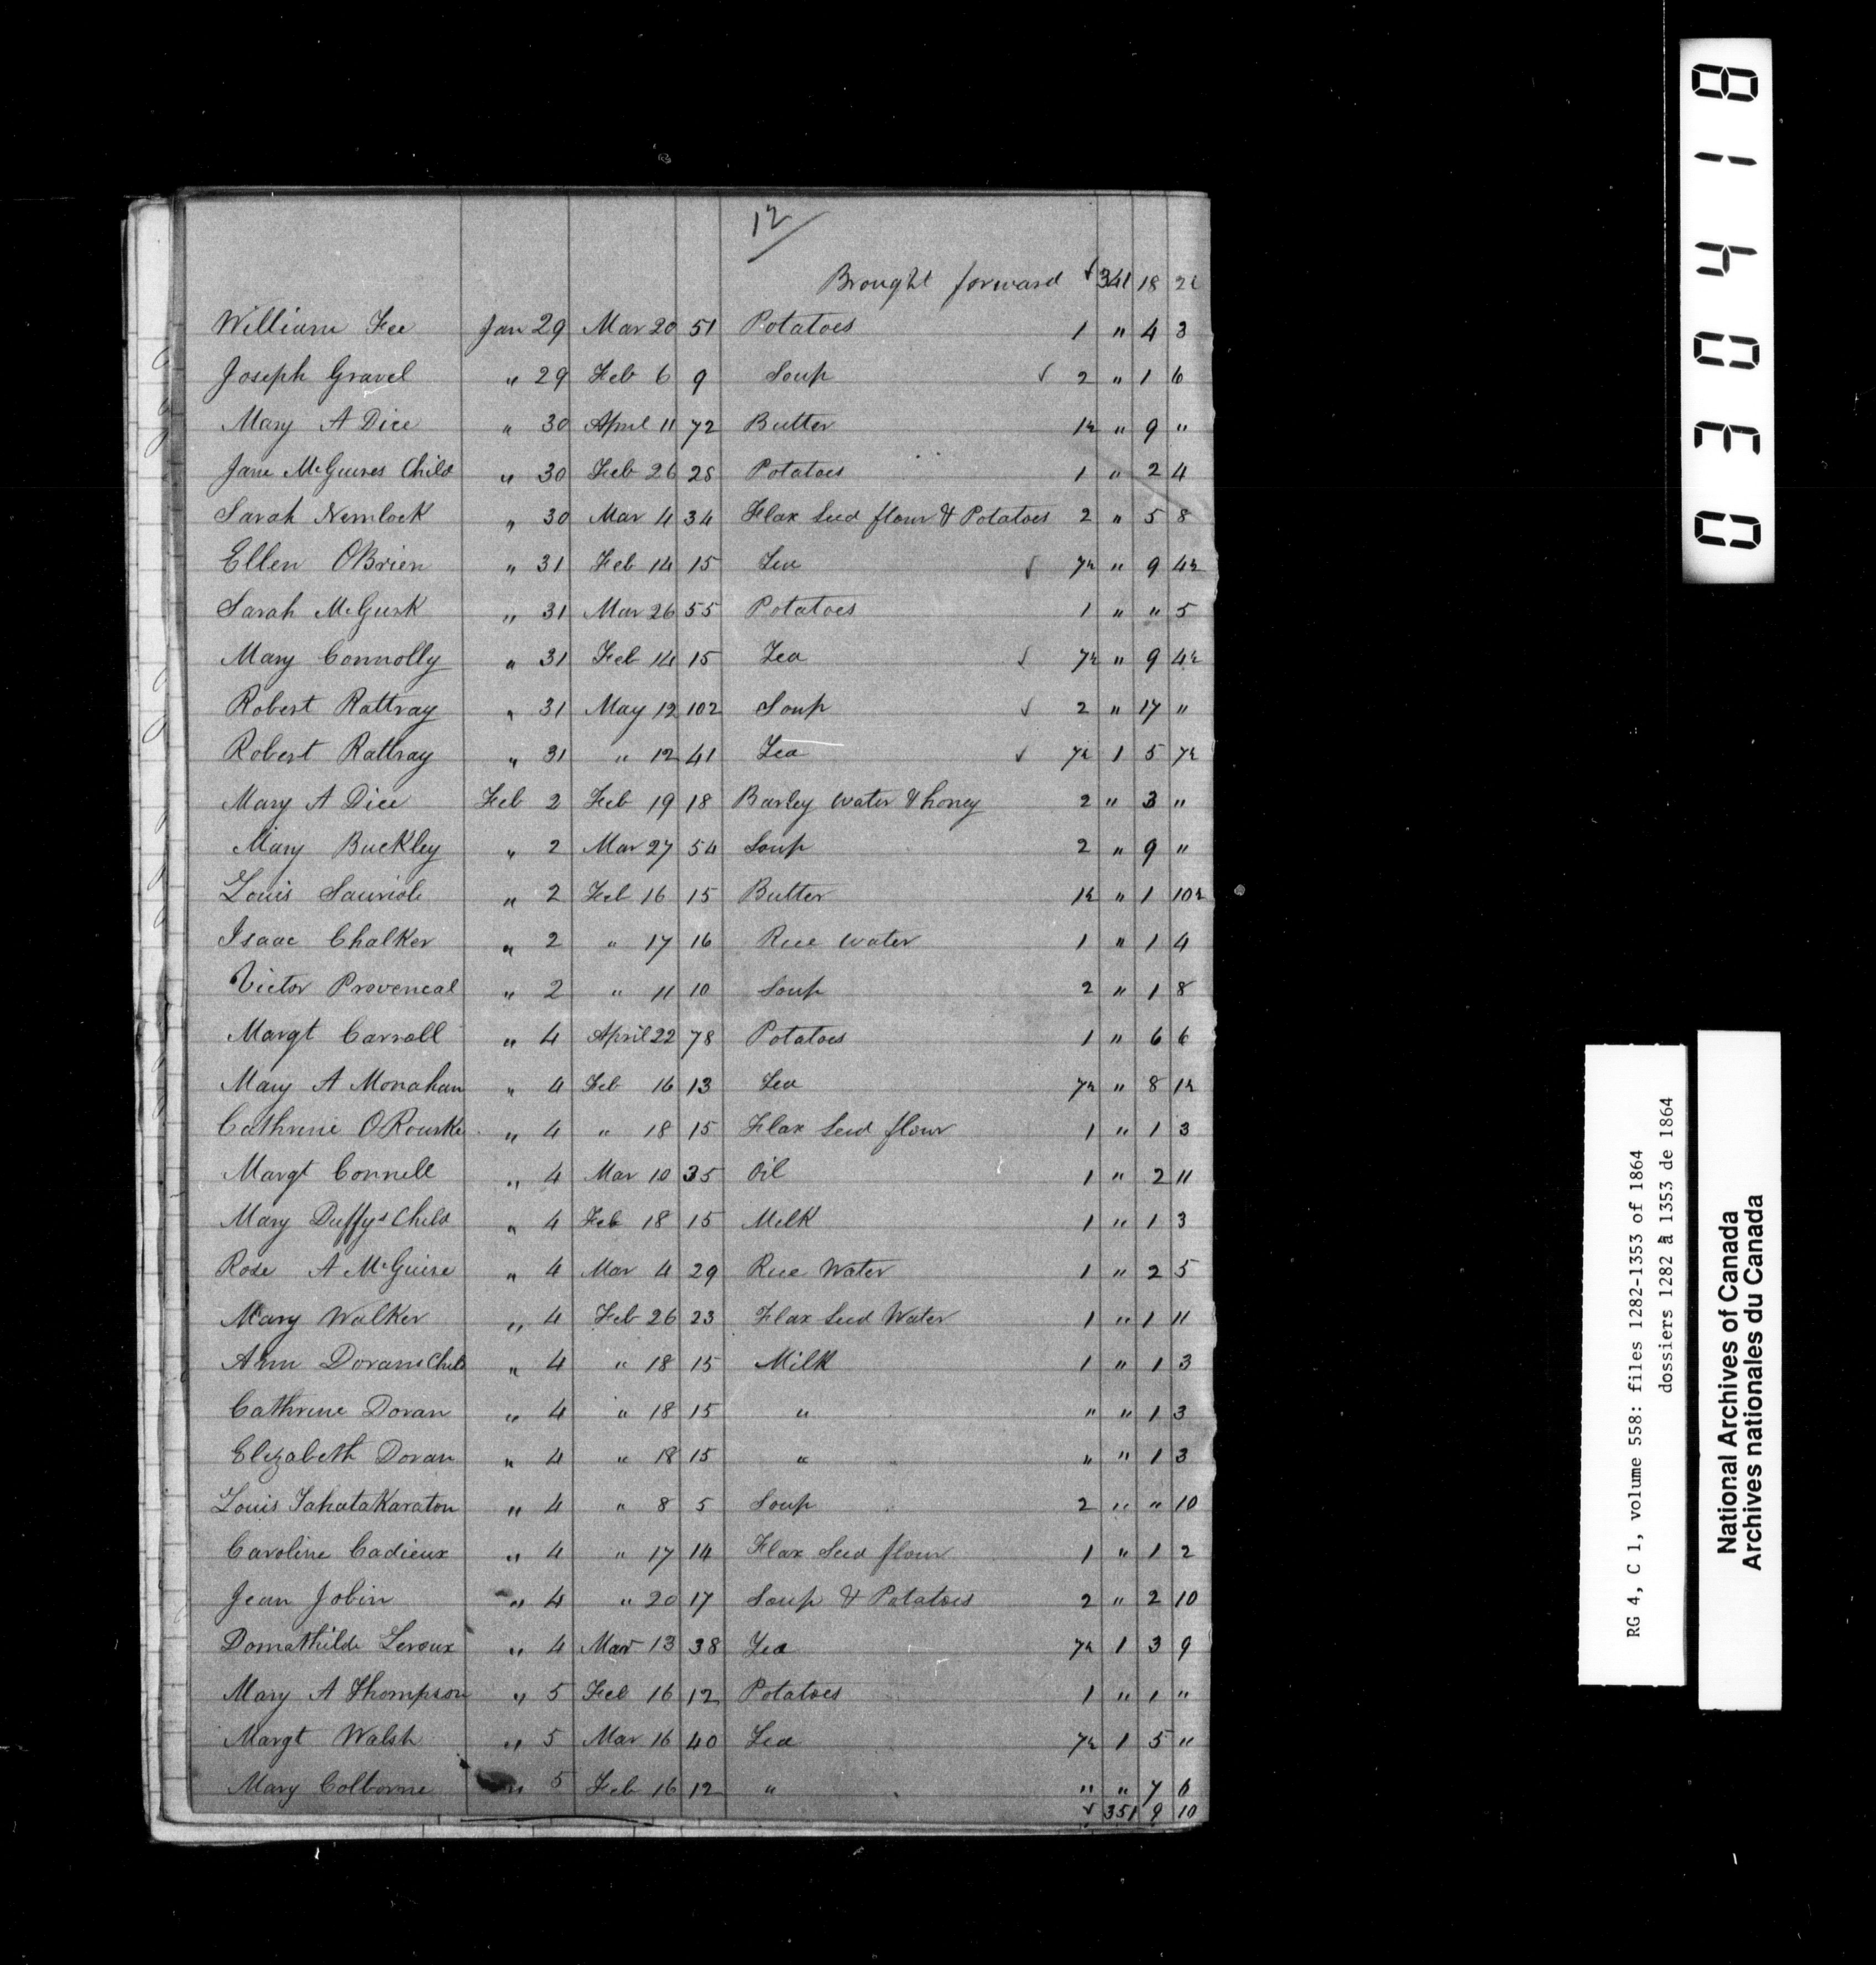 12
Brought forward √ 341 18 2½
William Fee Jan 29 Mar 20 51 Potatoes 1 " 4 3
Joseph Gravel " 29 Feb 6 9 Soup √ 2 " 1 6
Mary A Dice " 30 April 11 72 Butter 1½ " 9 "
Jane McGuires Child " 30 Feb 26 28 Potatoes 1 " 2 4
Sarah Nemlock " 30 Mar 4 34 Flax Seed flour & Potatoes 2 " 5 8
Ellen OBrien " 31 Feb 14 15 Tea √ 7½ " 9 4½
Sarah McGurk " 31 Mar 26 55 Potatoes 1 " " 5
Mary Connolly " 31 Feb 14 15 Tea √ 7½ " 9 4½
Robert Rattray " 31 May 12 102 Soup √ 2 " 17 "
Robert Rattray " 31 " 12 41 Tea √ 7½ 1 5 7½
Mary A Dice Feb 2 Feb 19 18 Barley Water & honey 2 " 3 "
Mary Buckley " 2 Mar 27 54 Soup 2 " 9 "
Louis Sauriole " 2 Feb 16 15 Butter 1½ " 1 10½
Isaac Chalker " 2 " 17 16 Rice Water 1 " 1 4
Victor Provencal " 2 " 11 10 Soup 2 " 1 8
Margt Carroll " 4 April 22 78 Potatoes 1 " 6 6
Mary A Monahan " 4 Feb 16 13 Tea 7½ " 8 1½
Cathrine ORourke " 4 " 18 15 Flax Seed flour 1 " 1 3
Margt Connell " 4 Mar 10 35 Oil 1 " 2 11
Mary Duffys Child " 4 Feb 18 15 Milk 1 " 1 3
Rose A McGuire " 4 Mar 4 29 Rice Water 1 " 2 5
Mary Walker " 4 Feb 26 23 Flax Seed Water 1 " 1 11
Ann Dorans Child " 4 " 18 15 Milk 1 " 1 3
Cathrine Doran " 4 " 18 15 " " " 1 3
Elizabeth Doran " 4 " 18 15 " " " 1 3
Louis Tahatakaraton " 4 " 8 5 Soup 2 " " 10
Caroline Cadieux " 4 " 17 14 Flax Seed flour 1 " 1 2
Jean Jobin " 4 " 20 17 Soup & Potatoes 2 " 2 10
Domathilde Leroux " 4 Mar 13 38 Tea 7½ 1 3 9
Mary A Thompson " 5 Feb 16 12 Potatoes 1 " 1 "
Margt Walsh " 5 Mar 16 40 Tea 7½ 1 5 "
Mary Colborne " 5 Feb 16 12 " " " 7 6
√ 351 9 10
030418
RG 4, C 1, volume 558: files 1282-1353 of 1864
dossiers 1282 à 1353 de 1864
National Archives of Canada
Archives nationales du Canada